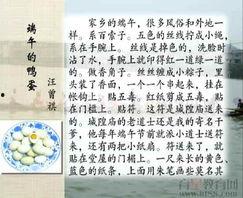 端午的鸭蛋
汪曾祺
家乡的端午，很多风俗和外地一
样。系百索子。五色的丝线拧成小绳，
系在手腕上。丝线是掉色的，洗脸时
沾了水，手腕上就印得红一道绿一道
的。做香角子。丝线缠成小粽子，里
头装了香面，一个一个串起来，挂在
帐钩上。贴五毒。红纸剪成五毒，贴
在门坎上。贴符。这符是城隍庙送来
的。城隍庙的老道士还是我的寄名干
爹，他每年端午节前就派小道士送符
来，还有两把小纸扇。符送来了，就
贴在堂屋的门楣上。一尺来长的黄色、
蓝色的纸条，上面用朱笔画些莫名其